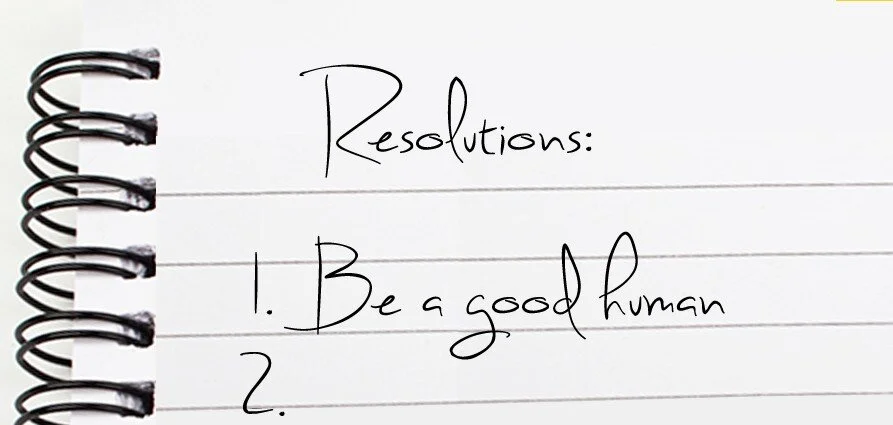 Resolutions:
1. Be a good human
2.